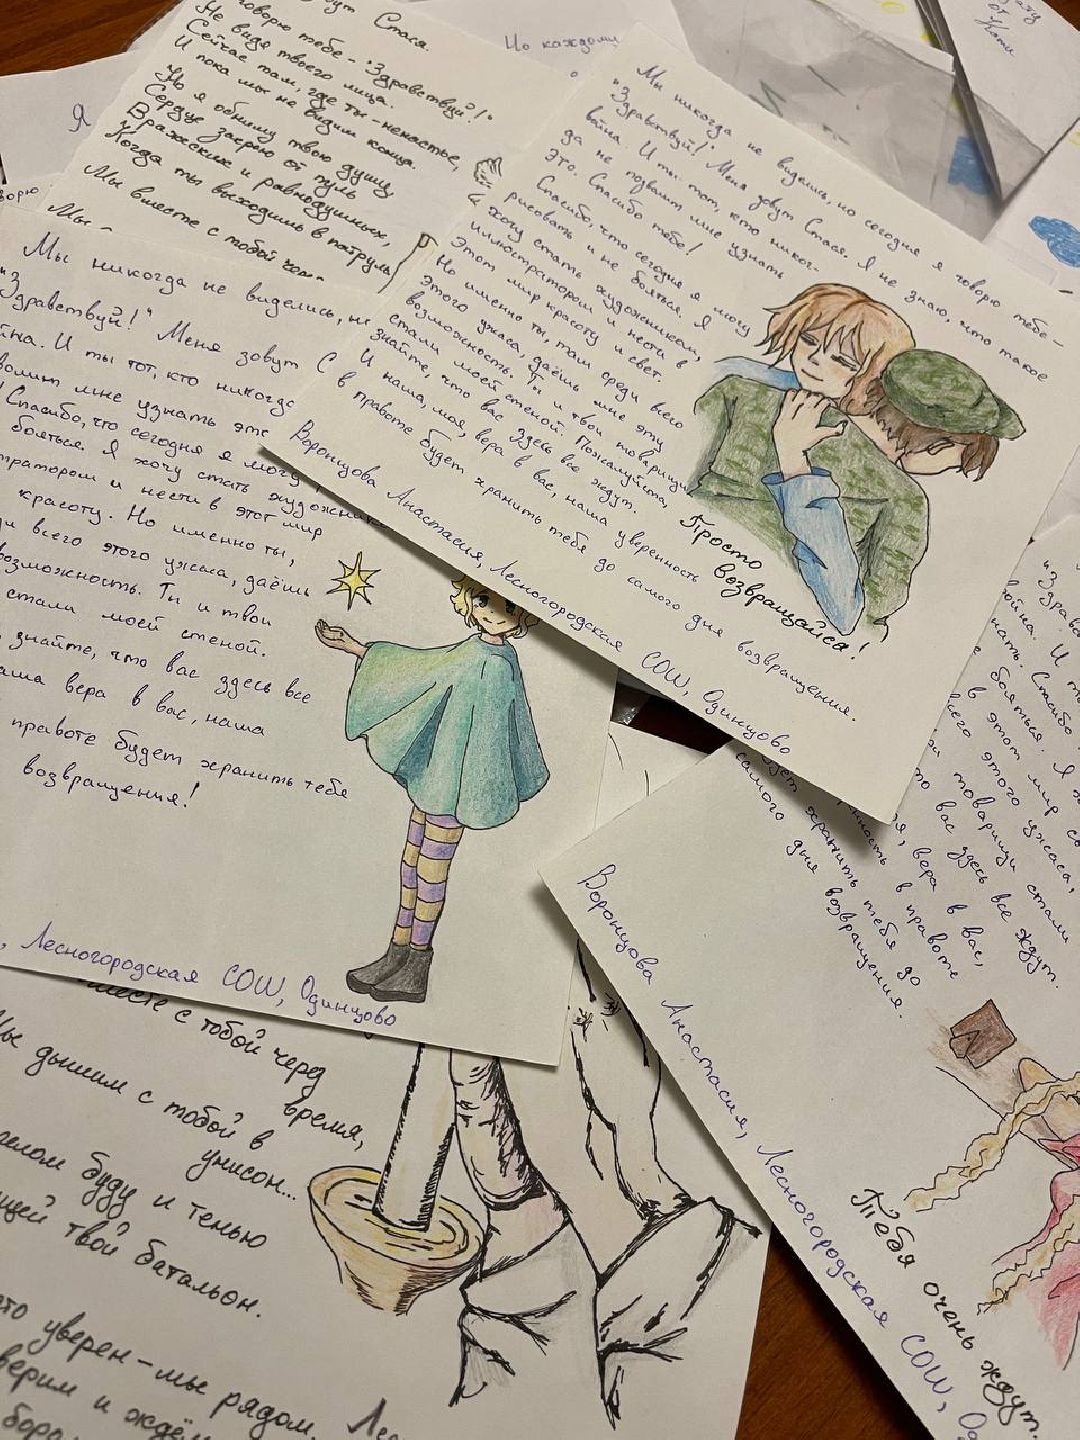 зовут Стася
говорю тебе - "Здравствуй!"
Не видя твоего лица.
Сейчас там, где ты - ненастье,
И пока мы не видим конца.
Но я обниму твою душу,
Сердце закрою от пуль
Вражеских и равнодушных,
Когда ты выходишь в патруль
Мы вместе с тобой
Но каждому
от
Кати
Я
Мы
Мы никогда не виделись, но сегодня я говорю тебе -
"Здравствуй!" Меня зовут Стася. Я не знаю, что такое
война. И ты тот, кто никог-
да не позволит мне узнать
это. Спасибо тебе!
Спасибо, что сегодня я могу
рисовать и не бояться. Я
хочу стать художником,
иллюстратором и нести в
этот мир красоту и свет.
Но именно ты, там среди всего
этого ужаса, даёшь мне эту
возможность. Ты и твои товарищи
стали моей стеной. Пожалуйста,
знайте, что вас здесь все ждут.
И наша, моя, вера в вас, наша уверенность
в правоте будет хранить тебя до самого дня возвращения.
Просто
возвращайся!
Воронцова Анастасия, Лесногородская СОШ, Одинцово
Мы никогда не виделись, но
"Здравствуй!" Меня зовут С
йна. И ты тот, кто никогда
волит мне узнать это
Спасибо, что сегодня я могу
бояться. Я хочу стать художник
тратором и нести в этот мир
красоту. Но именно ты,
ди всего этого ужаса, даёшь
возможность. Ты и твои
стали моей стеной.
знайте, что вас здесь все
аша вера в вас, наша
правоте будет хранить тебя
возвращения!
, Лесногородская СОШ, Одинцово
вместе с тобой через
время,
Мы дышим с тобой в
унисон...
телом буду и тенью
щей твой батальон.
что уверен - мы рядом.
верим и ждём
"Здравс
ойна. И ты
нать. Спасибо
бояться. Я
в этот мир
всего этого ужаса,
и товарищи стали
то вас здесь все ждут.
вера в вас,
в правоте
будет хранить тебя до
самого дня возвращения.
Воронцова Анастасия, Лесногородская СОШ, Од
Тебя очень ждут.